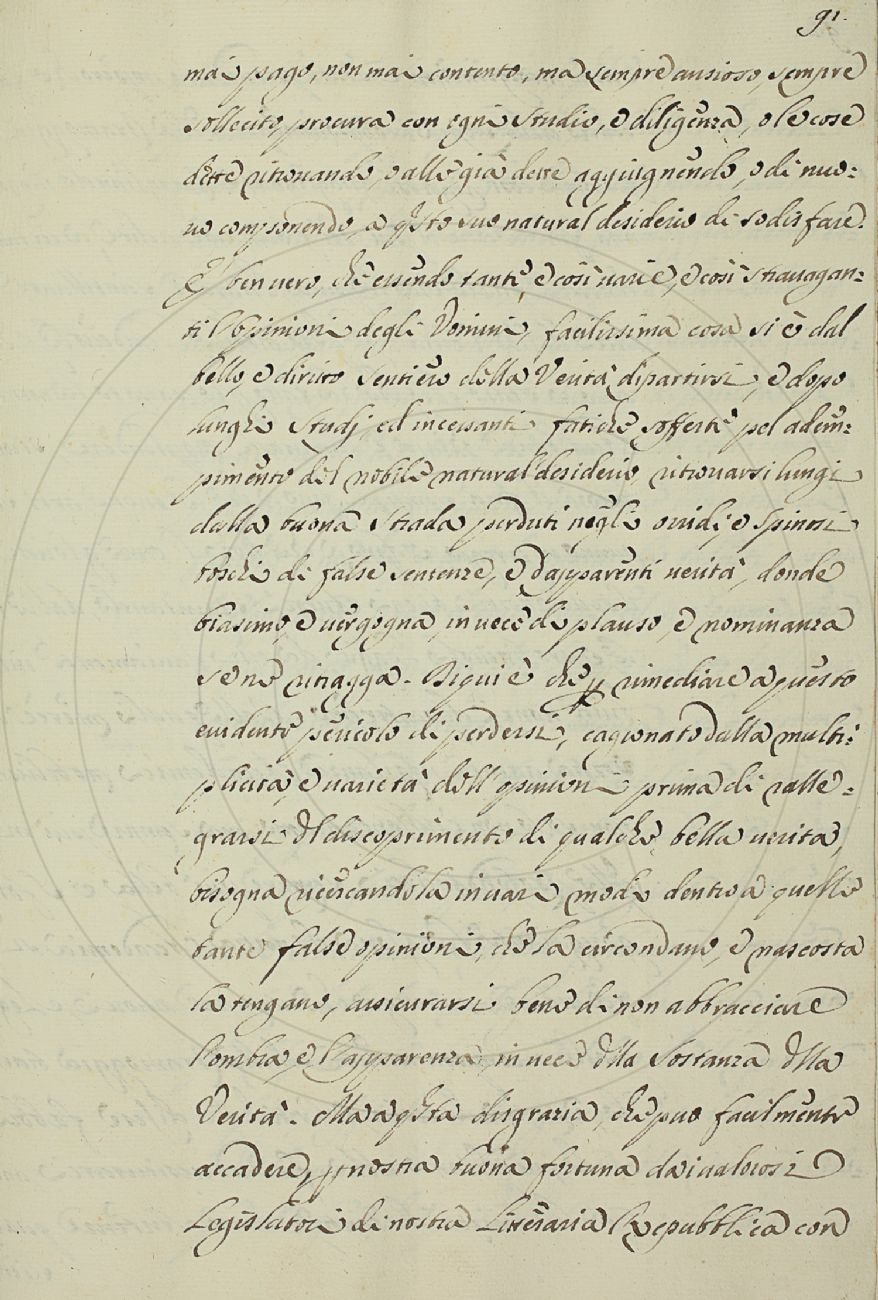 91.
mai pago, non mai contento, ma sempre ansioso, sempre
sollecito, procura con ogni studio, e diligenza, o le cose
dette ritrovando, o alle già dette aggiugnendo, o di nuo=
vo componendo, a qsto suo natural desiderio di sodisfare.
E' ben vero, che essendo tante, e così varie, e così stravagan=
ti l'opinioni degli Uomini, facilissima cosa si è dal
bello, e diritto sentiero della Verità dipartirsi, e dopo
lunghi studj, ed incessanti fatiche sofferte pel adem=
pimento del nobile natural desiderio, ritrovarsi lungi
dalla buona strada perduti negli ovidi, e spinosi
boschi di false sentenze, e d'apparenti verità, donde
biasimo, e vergogna, in vece di plauso, e nominanza
se ne ritragga. Di qui è che p rimediare a questo
evidente pericolo di perdersi, cagionato dalla multi=
plicità, e varietà dell'opinioni prima di ralle=
grarsi dl discoprimento di qualche bella verità,
bisogna ricercandola in vari modi dentro a quelle
tante false opinioni, che la circondano, e nascosta
la tengano, assicurarsi bene di non abbracciare
l'ombra, e l'apparenza, in vece dlla sostanza dlla
Verità. Ma a qsta disgrazia, che può facilmente
accadere, p nostra buona fortuna dai valorosi
Legislatori di nostra Litteraria Repubblica con